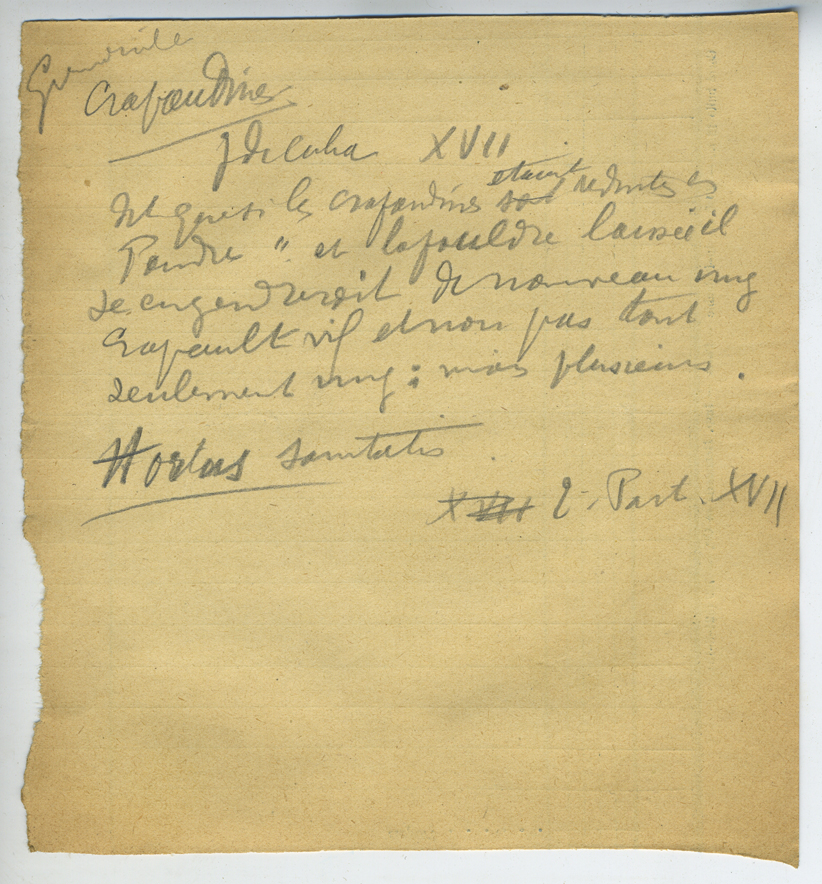 Grenouille
Crapaudines
J de Cuba XVII
dit que si les crapaudines étaient sont réduites en
Poudre " et la pouldre laissée il
se engendreroit de nouveau ung
Crapault vif et non pas tout
seulement ung : mais plusieurs .
Hortus sanitatis
XVII 2. Part. XVII